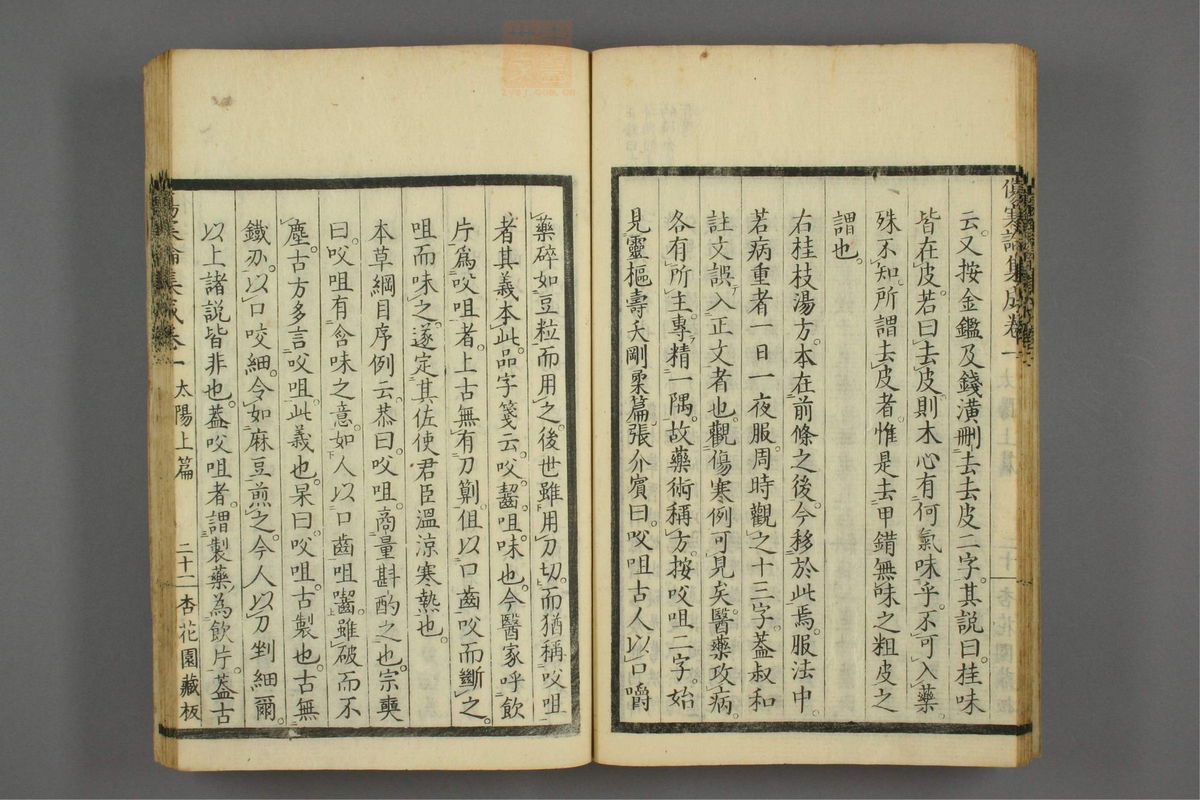 傷寒論集成卷一
云又按金鑑及錢潢刪去去皮二字其說曰桂味
皆在皮若曰去皮則木心有何氣味乎不可入藥
殊不知所謂去皮者惟是去甲錯無味之粗皮之
謂也
右桂枝湯方本在前條之後今移於此焉服法中
若病重者一日一夜服周時觀之十三字蓋叔和
註文誤入正文者也觀傷寒例可見矣醫藥攻病
各有所主專精一隅故藥術稱方按㕮咀二字始
見靈樞壽夭剛柔篇張介賓曰㕮咀古人以口嚼
藥碎如豆粒而用之後世雖用刀切而猶稱㕮咀
者其義本此品字箋云㕮齧咀味也今醫家呼飲
片爲㕮咀者上古無有刀劗但以口齒㕮而斷之
咀而味之遂定其佐使君臣溫涼寒熱也
本草綱目序例云恭曰㕮咀商量斟酌之也宗奭
曰㕮咀有含味之意如人以口齒咀嚙雖破而不
塵古方多言㕮咀此義也杲曰㕮咀古製也古無
鐵刅以口咬細令如麻豆煎之今人以刀剉細爾
以上諸說皆非也蓋㕮咀者謂製藥為飲片蓋古
傷寒論集成卷一 太陽上篇 二十二 杏花園藏板